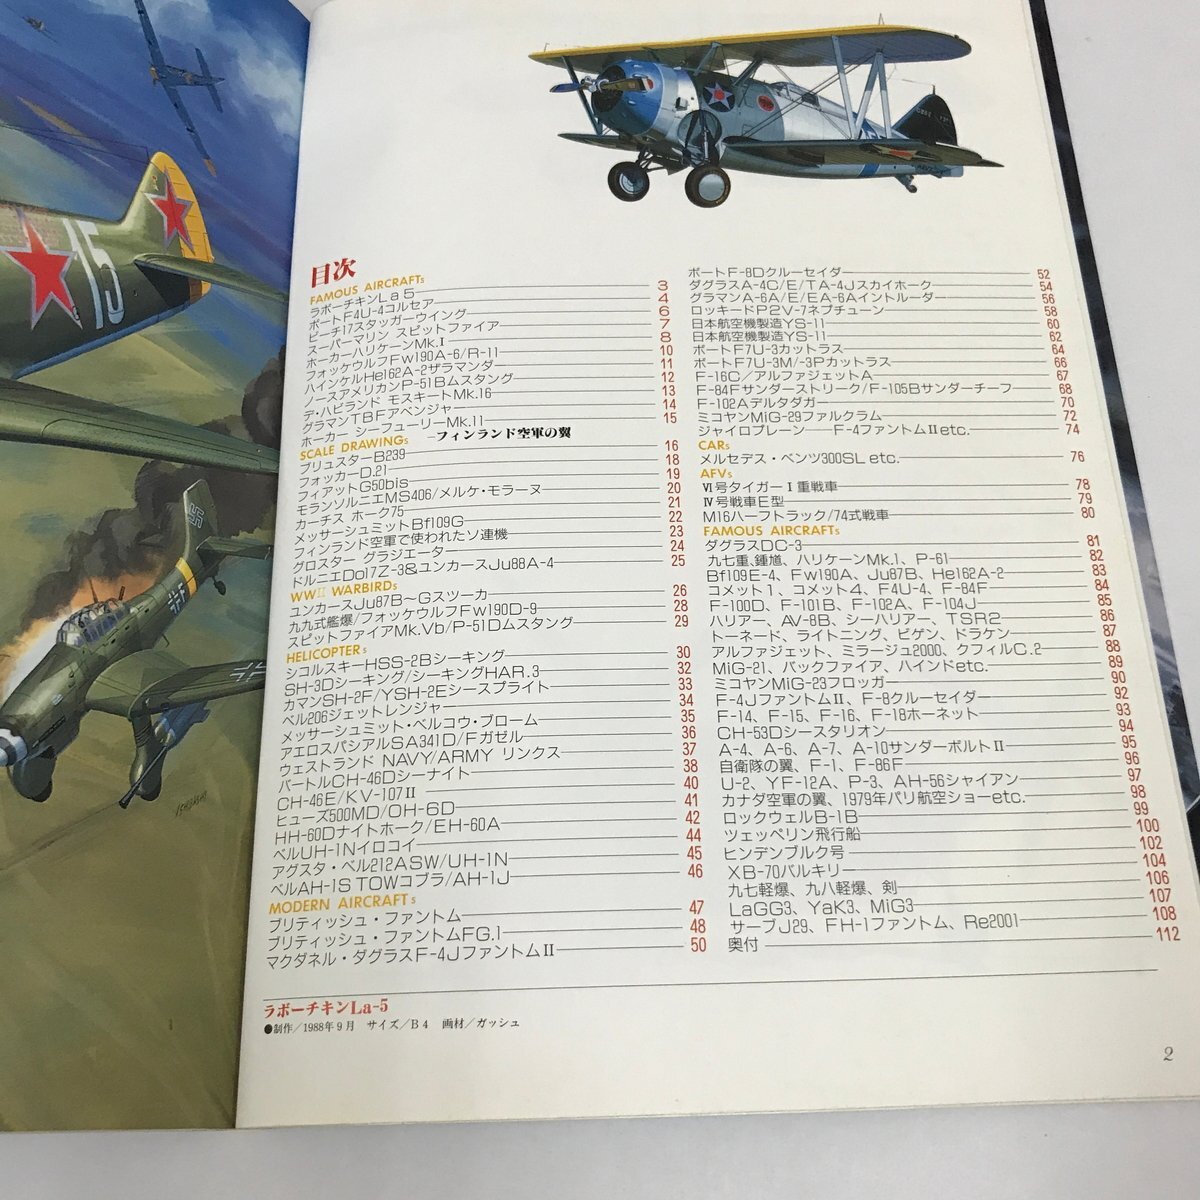 15
目次
FAMOUS AIRCRAFTs
ラボーチキンLa5 3
ボートF4U-4コルセア 4
ビーチ17スタッガーウイング 6
スーパーマリン スピットファイア 7
ホーカーハリケーンMk.I 8
フォッケウルフFw190A-6/R-11 10
ハインケルHe162A-2ザラマンダ 11
ノースアメリカンP-51Bムスタング 12
デ・ハビランド モスキートMk.16 13
グラマンTBFアベンジャー 14
ホーカー シーフューリーMk.11 15
SCALE DRAWINGs —フィンランド空軍の翼
ブリュスターB239 16
フォッカーD.21 18
フィアットG50bis 19
モランソルニエMS406/メルケ・モラーヌ 20
カーチス ホーク75 21
メッサーシュミットBf109G 22
フィンランド空軍で使われたソ連機 23
グロスター グラジエーター 24
ドルニエDo17Z-3&ユンカースJu88A-4 25
WWⅡ WARBIRDs
ユンカースJu87B〜Gスツーカ 26
九九式艦爆/フォッケウルフFw190D-9 28
スピットファイアMk.Vb/P-51Dムスタング 29
HELICOPTERs
シコルスキーHSS-2Bシーキング 30
SH-3Dシーキング/シーキングHAR.3 32
カマンSH-2F/YSH-2Eシースプライト 33
ベル206ジェットレンジャー 34
メッサーシュミット・ベルコウ・ブローム 35
アエロスパシアルSA341D/Fガゼル 36
ウェストランド NAVY/ARMY リンクス 37
バートルCH-46Dシーナイト 38
CH-46E/KV-107Ⅱ 40
ヒューズ500MD/OH-6D 41
HH-60Dナイトホーク/EH-60A 42
ベルUH-1Nイロコイ 44
アグスタ・ベル212ASW/UH-1N 45
ベルAH-1S TOWコブラ/AH-1J 46
MODERN AIRCRAFTs
ブリティッシュ・ファントム 47
ブリティッシュ・ファントムFG.1 48
マクダネル・ダグラスF-4JファントムⅡ 50
ボートF-8Dクルーセイダ 52
ダグラスA-4C/E/TA-4Jスカイホーク 54
グラマンA-6A/E/EA-6Aイントルーダ 56
ロッキードP2V-7ネプチューン 58
日本航空機製造YS-11 60
日本航空機製造YS-11 62
ボートF7U-3カットラス 64
ボートF7U-3M/-3Pカットラス 66
F-16C/アルファジェットA 67
F-84Fサンダーストリーク/F-105Bサンダーチーフ 68
F-102Aデルタダガ 70
ミコヤンMiG-29ファルクラム 72
ジャイロプレーン——F-4ファントムⅡetc. 74
CARs
メルセデス・ベンツ300SL etc. 76
AFVs
Ⅵ号タイガーⅠ重戦車 78
Ⅳ号戦車E型 79
M16ハーフトラック/74式戦車 80
FAMOUS AIRCRAFTs
ダグラスDC-3 81
九七重、鍾馗、ハリケーンMk.1、P-61 82
Bf109E-4、Fw190A、Ju87B、He162A-2 83
コメット1、コメット4、F4U-4、F-84F 84
F-100D、F-101B、F-102A、F-104J 85
ハリアー、AV-8B、シーハリアー、TSR2 86
トーネード、ライトニング、ビゲン、ドラケン 87
アルファジェット、ミラージュ2000、クフィルC.2 88
MiG-21、バックファイア、ハインドetc. 89
ミコヤンMiG-23フロッガ 90
F-4JファントムⅡ、F-8クルーセイダ 92
F-14、F-15、F-16、F-18ホーネット 93
CH-53Dシースタリオン 94
A-4、A-6、A-7、A-10サンダーボルトⅡ 95
自衛隊の翼、F-1、F-86F 96
U-2、YF-12A、P-3、AH-56シャイアン 97
カナダ空軍の翼、1979年パリ航空ショーetc. 98
ロックウェルB-1B 99
ツェッペリン飛行船 100
ヒンデンブルク号 102
XB-70バルキリー 104
九七軽爆、九八軽爆、剣 106
LaGG3、YaK3、MiG3 107
サーブJ29、FH-1ファントム、Re2001 108
奥付 112
ラボーチキンLa-5
●制作/1988年9月 サイズ/B4 画材/ガッシュ
2